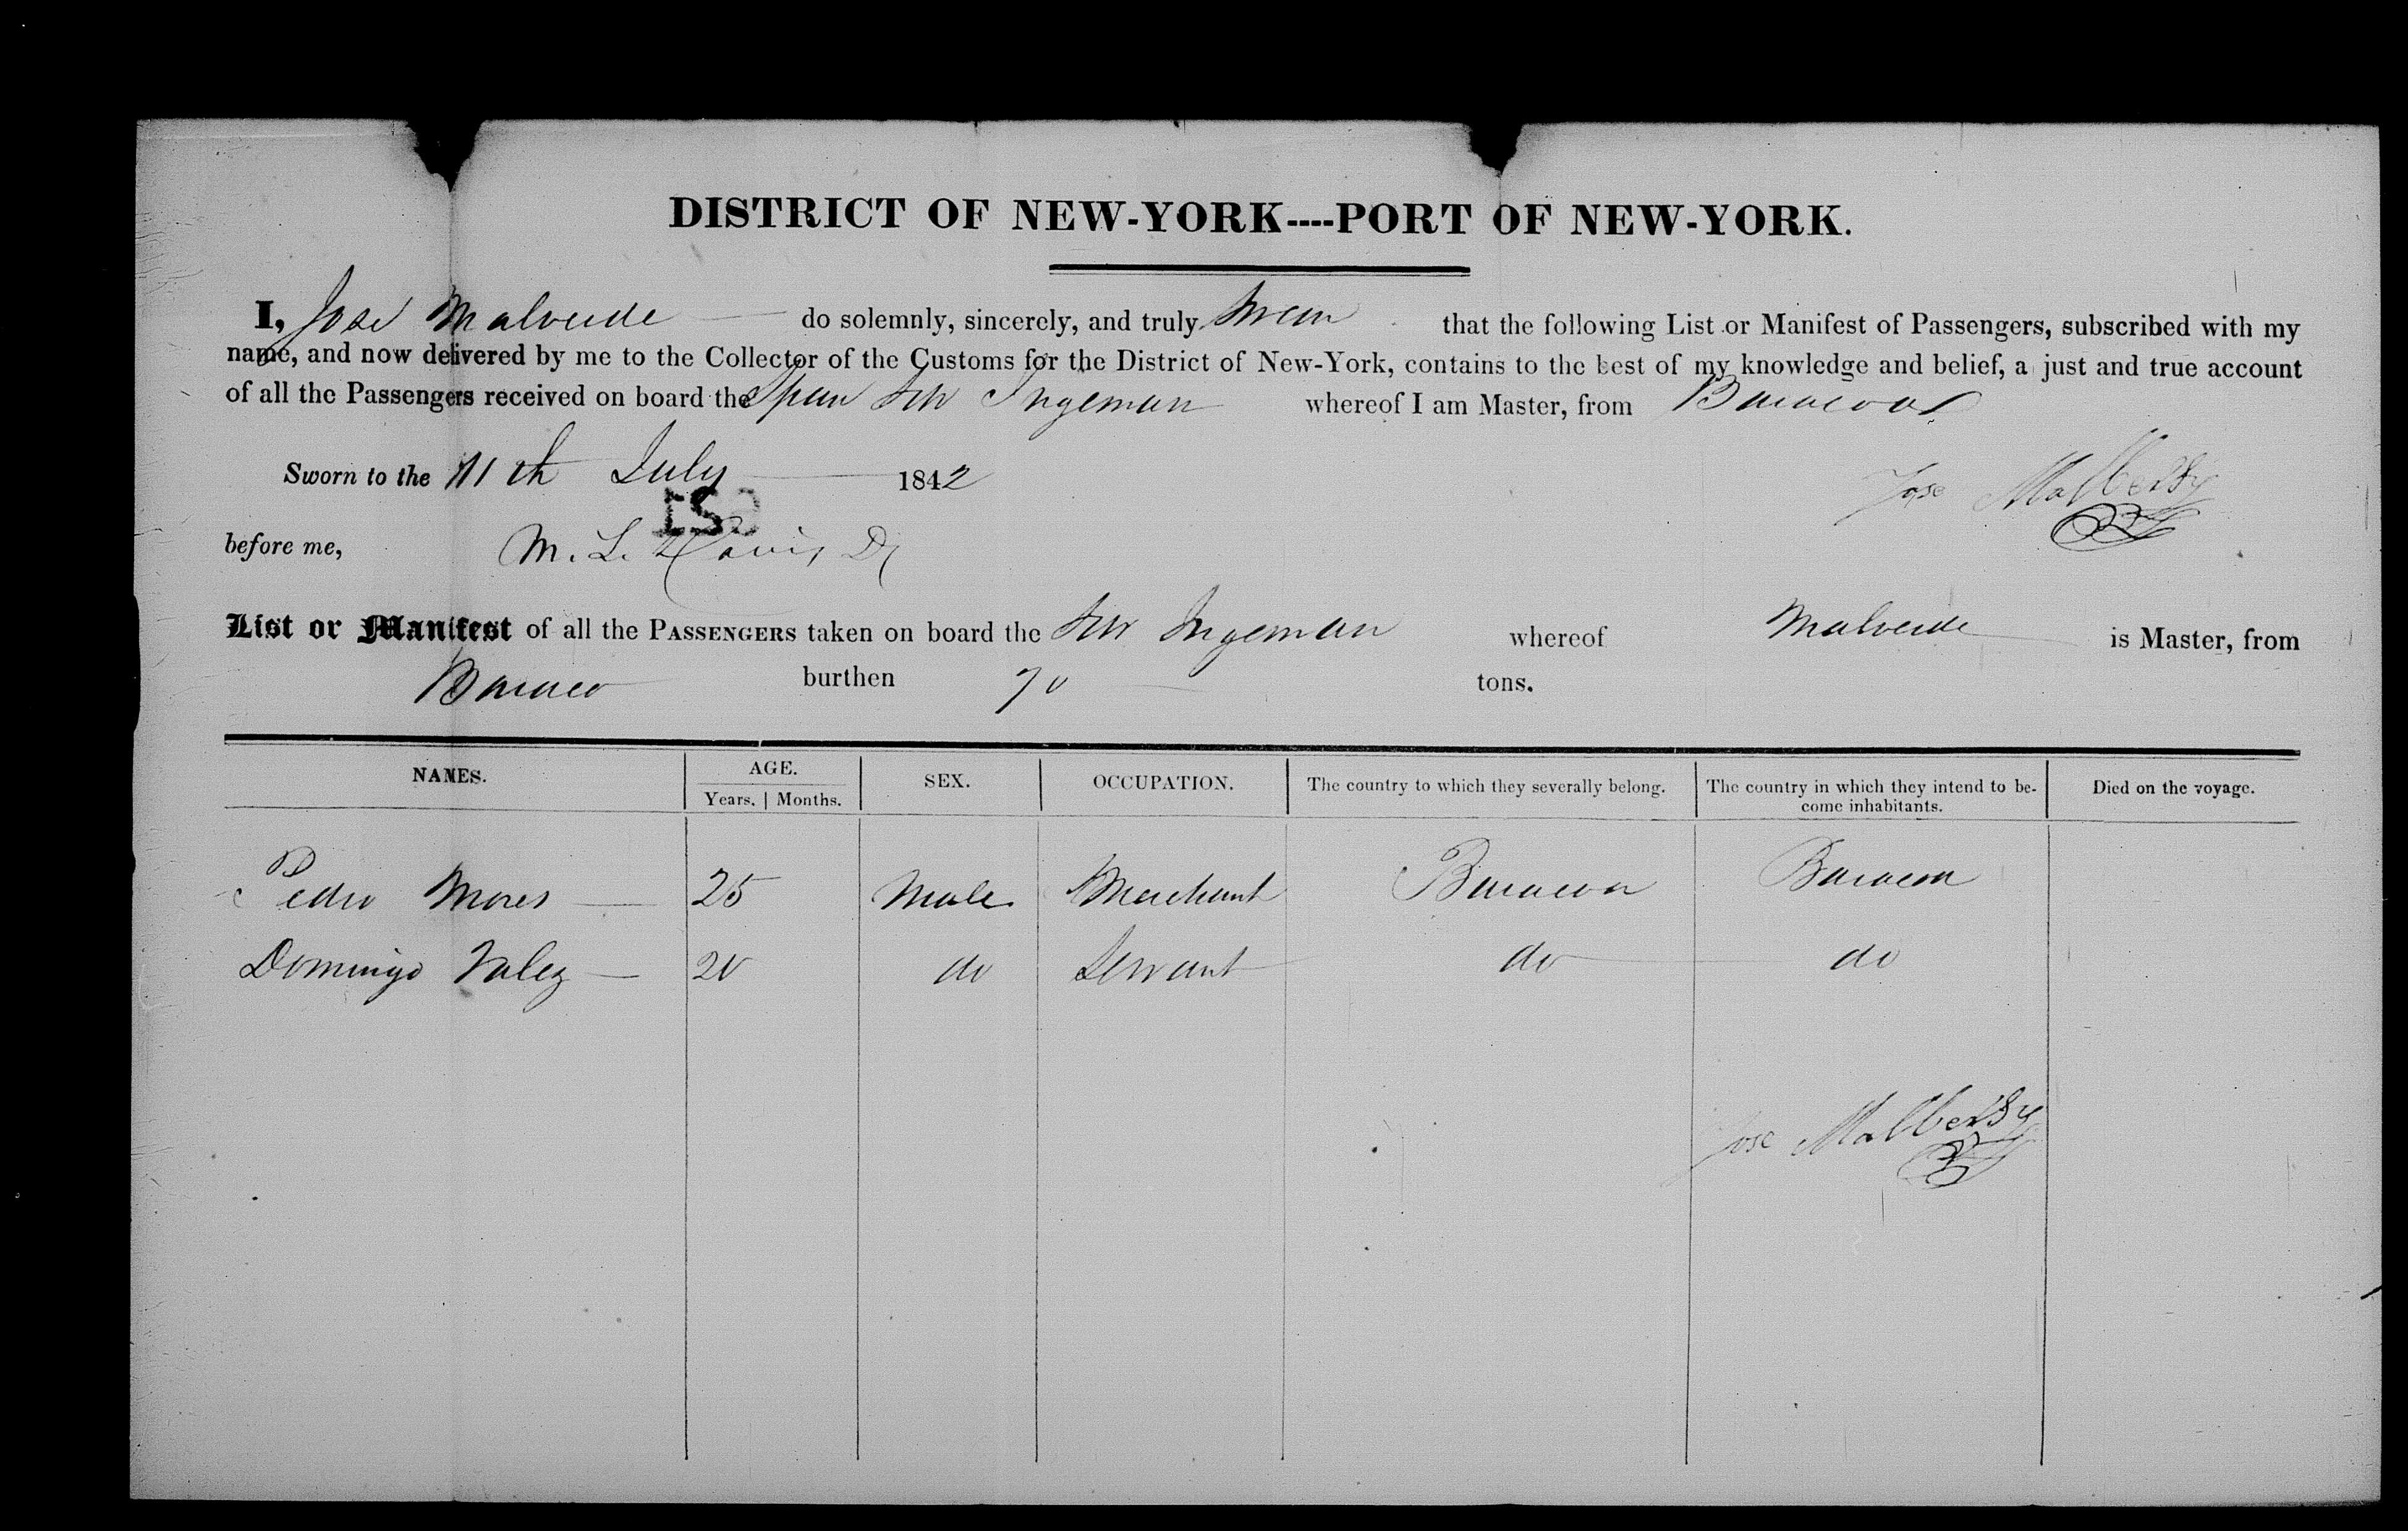 DISTRICT OF NEW-YORK----PORT OF NEW-YORK.
I, Jose Malverde do solemnly, sincerely, and truly swear that the following List or Manifest of Passengers, subscribed with my
name, and now delivered by me to the Collector of the Customs for the District of New-York, contains to the best of my knowledge and belief, a just and true account
of all the Passengers received on board the Span Schr Ingeman whereof I am Master, from Baracoa
Sworn to the 11th July 1842
Jose
before me, M. L. Davis
List or Manifest of all the PASSENGERS taken on board the Schr Ingeman whereof Malverde is Master, from
Baraco burthen 70 tons.
NAMES. AGE. SEX. OCCUPATION. The country to which they severally belong. The country in which they intend to be- Died on the voyage.
Years. | Months. come inhabitants.
Pedro Mores 25 Male Merchant Baracoa Baracoa
Domingo Valez 20 do Servant do do
Jose